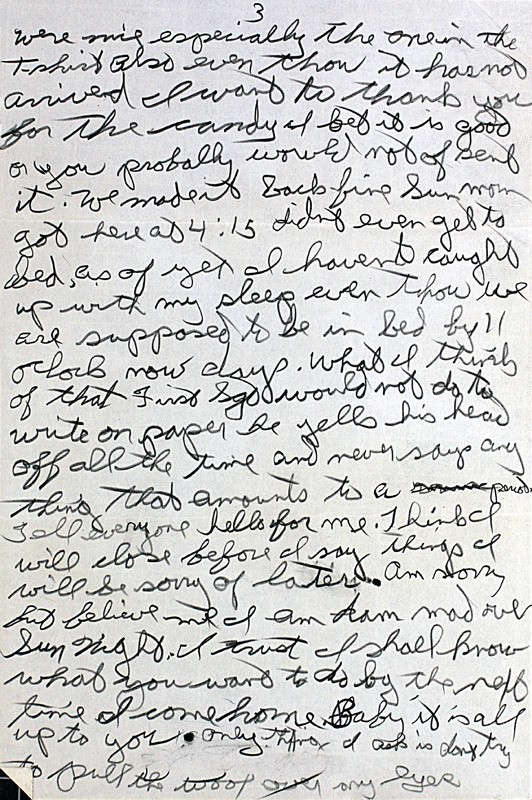 3
were nice especially the one in the
T-shirt also even thou it has not
arrived I want to thank you
for the candy I bet it is good
or you probally would not of sent
it. We made it back fine Sun morn
got here at 4:15 didnt even get to
bed, as of yet I havent caught
up with my sleep even thou we
are supposed to be in bed by 11
oclock now days. What I think
of that First Sgt would not do to
write on paper he yells his head
off all the time and never says any
thing that amounts to a period
Tell everyone hello for me. Think I
will close before I say things I
will be sorry of later. Am sorry
but believe me I am dam mad over
Sun Night. I trust I shall know
what you want to do by the next
time I come home. Baby it is all
up to you. only thing I ask is dont try
to pull the wool over my eyes